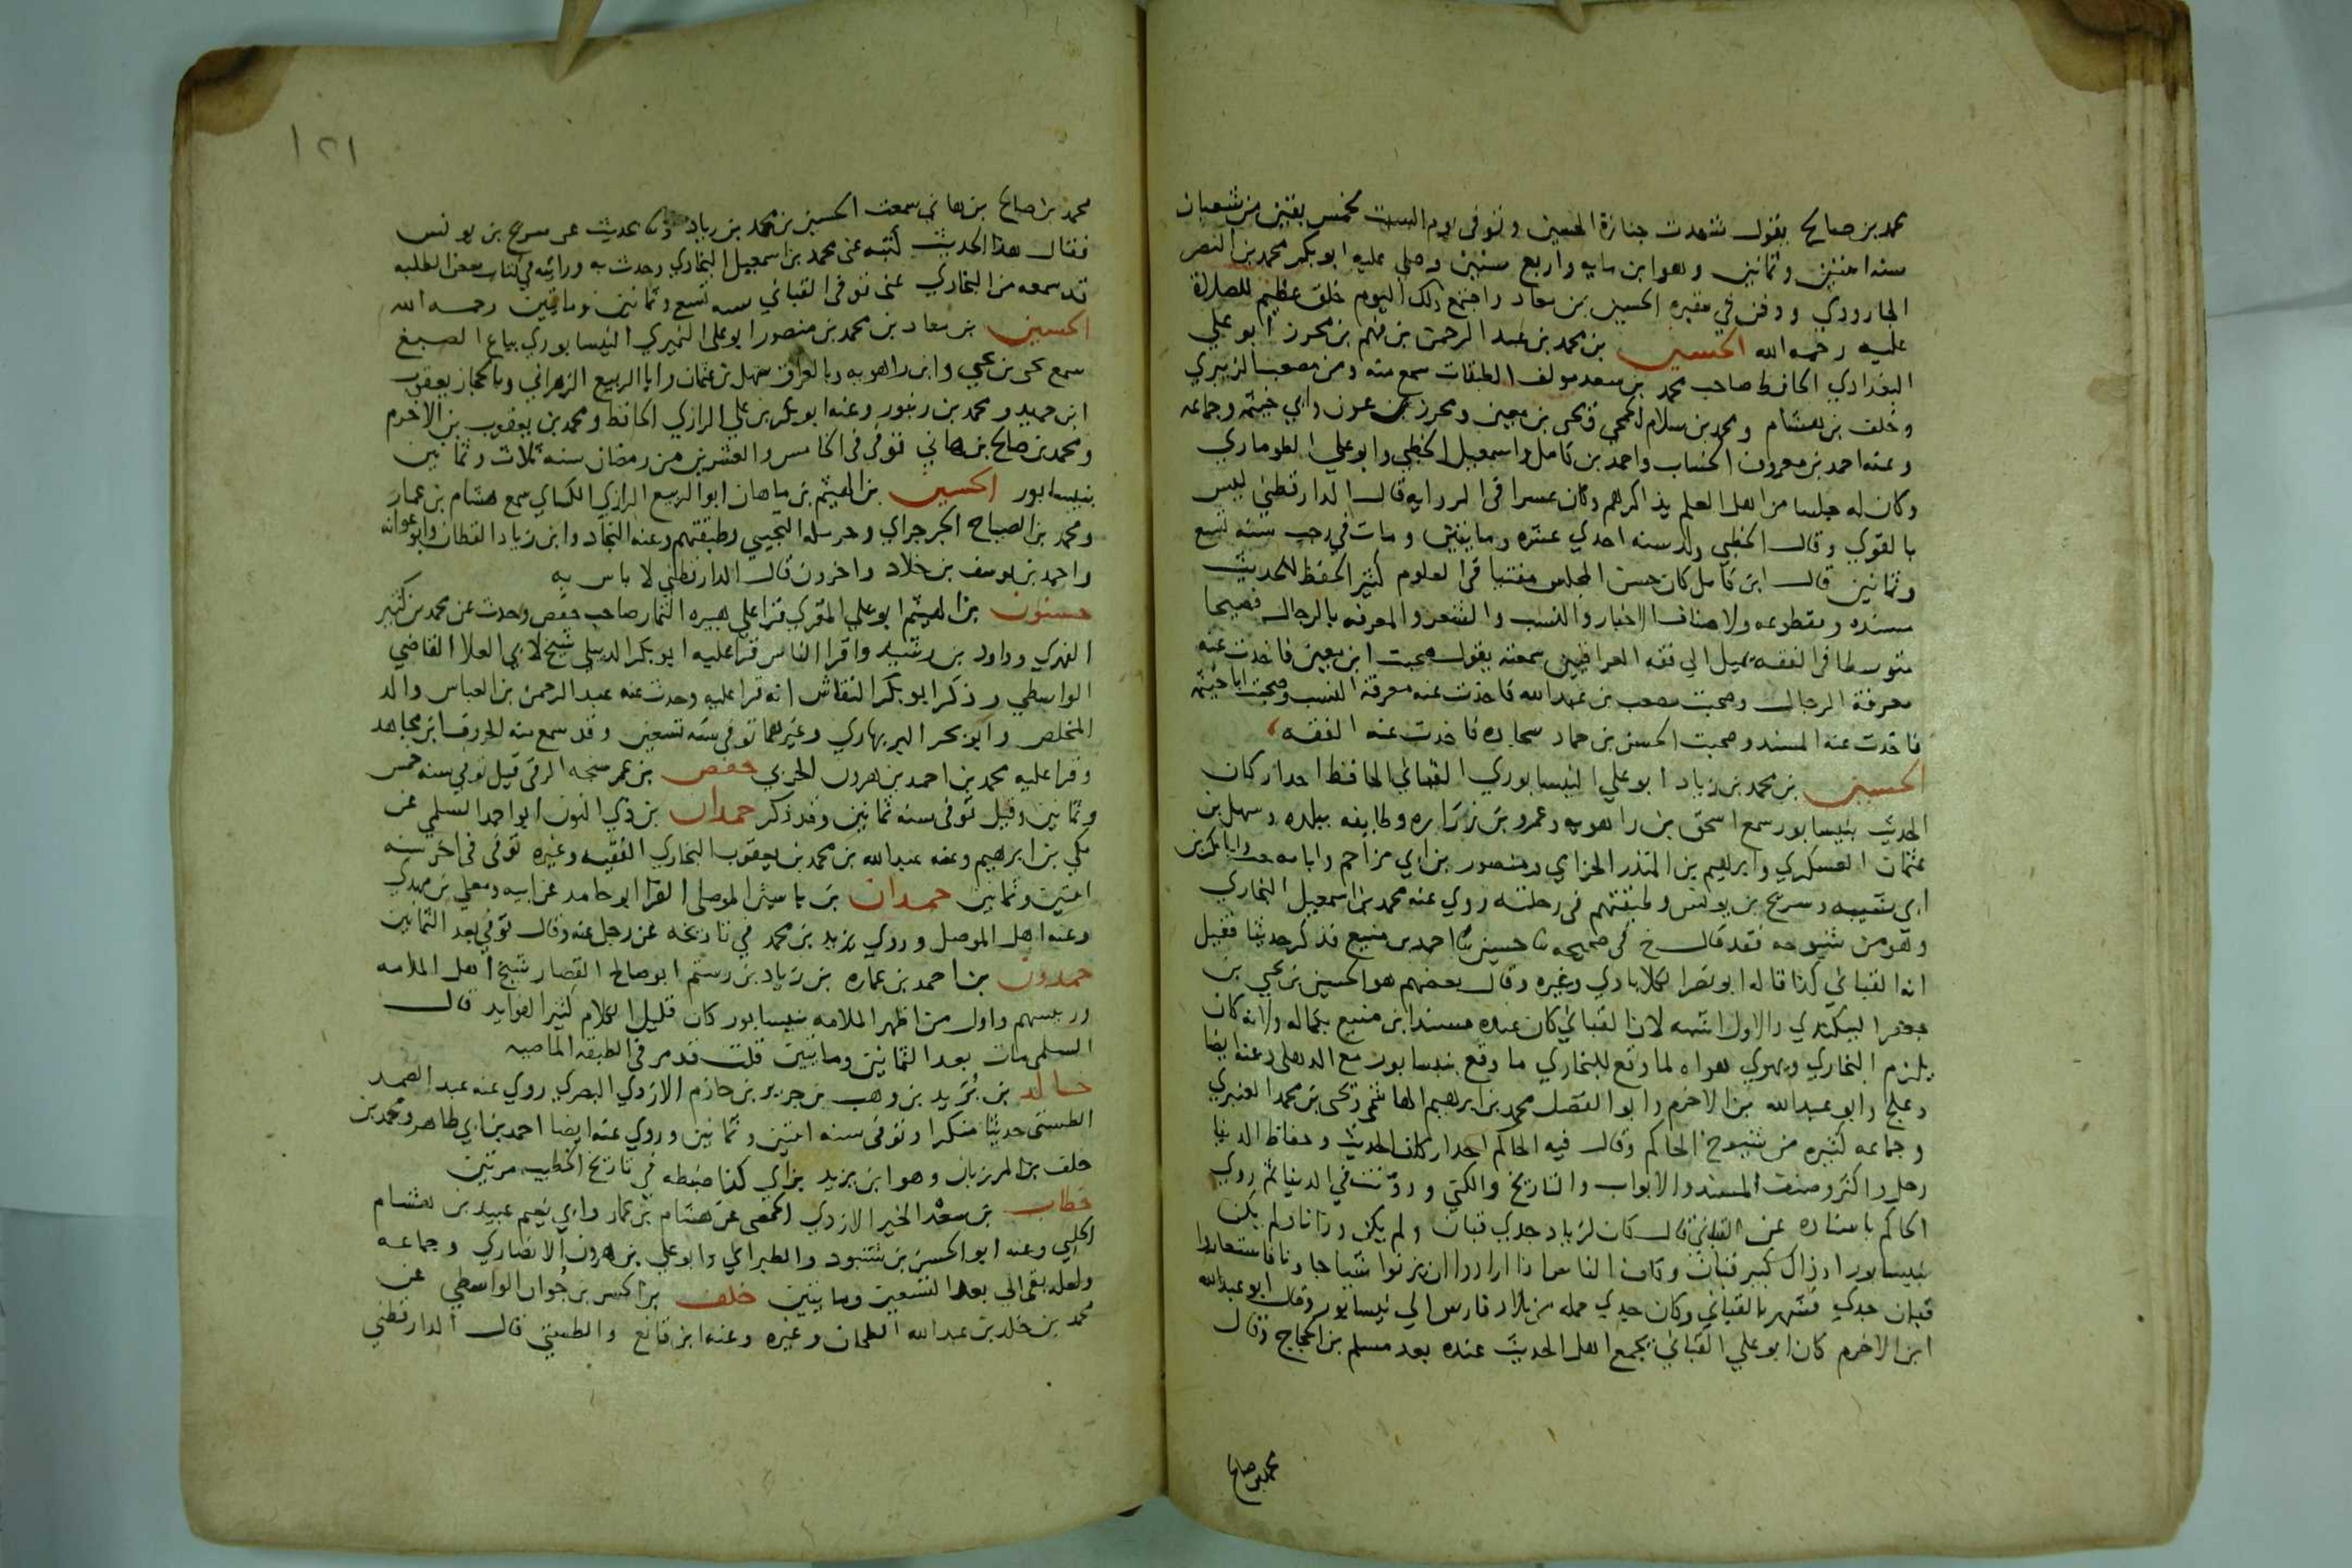 محمد بن صالح يقول شهدت جنازة الحسين وتوفى يوم السبت لخمس بقين من شعبان
سنه اثنتين وثمانين وهو ابن مايه واربع سنين وصلى عليه ابو بكر محمد بن النضر
الجارودي ودفن في مقبره الحسين بن معاد واجتمع ذلك اليوم خلق عظيم للصلاة
عليه رحمه الله الحسين بن محمد بن عبد الرحمن بن فهم بن محرز ابو علي
البغدادي الحافظ صاحب محمد بن سعد مولف الطبقات سمع منه ومن مصعب الزبيري
وخلف بن هشام ومحمد بن سلام الجمحي ويحيى بن معين ومحرز بن عون وابي خيثمه وجماعه
وعنه احمد بن معروف الخشاب واحمد بن كامل واسمعيل الخطبي وابو علي الطوماري
وكان له جلسا من اهل العلم يذاكرهم وكان عسرا في الروايه قال الدارقطني ليس
بالقوي وقال الخطبي ولد سنه احدي عشره ومايتين ومات في رجب سنه تسع
وثمانين قال ابن كامل كان حسن المجلس مفتيا في العلوم كثير الحفظ للحديث
مسنده ومقطوعه ولاصناف الاخبار والنسب والشعر والمعرفه بالرجال فصيحا
متوسطا في الفقه يميل الي فقه العراقيين سمعته يقول صحبت ابن معين فاخذت عنه
معرفة الرجال وصحبت مصعب بن عبد الله فاخذت عنه معرفة النسب وصحبت ابا خيثمه
فاخذت عنه المسند وصحبت الحسن بن حماد سجاده فاخذت عنه الفقه
الحسين بن محمد بن زياد ابو علي النيسابوري القباني الحافظ احد اركان
الحديث بنيسابور سمع اسحق بن راهويه وعمرو بن زراره وطايفه ببلده وسهل بن
عثمان العسكري وابرهيم بن المنذر الحزامي ومنصور بن ابي مزاحم وابا بكر بن
ابي شيبه وسريج بن يونس وطبقتهم في رحلته روي عنه محمد بن اسمعيل البخاري
وهو من شيوخه فقد قال خ في صحيحه ثنا حسين ثنا احمد بن منيع فذكر حديثا فقيل
انه القباني كذا قاله ابو نصر الكلاباذي وغيره وقال بعضهم هو الحسين بن يحيي بن
جعفر البيكندي والاول اشبه لان القباني كان عنده مسند ابن منيع بكماله ولانه كان
يلزم البخاري ويهوي هواه لما وقع للبخاري ما وقع بنيسابور مع الذهلي وعنه ايضا
دعلج وابو عبد الله بن الاخرم وابو الفضل محمد بن ابرهيم الهاشمي ويحيى بن محمد العنبري
وجماعه كثيره من شيوخ الحاكم وقال فيه الحاكم احد اركان الحديث وحفاظ الدنيا
رحل واكثر وصنف المسند والابواب والتاريخ والكني ودونت في الدنيا ثم روي
الحاكم باسناده عن القباني قال كان لزياد جدي قبان ولم يكن وزانا ولم يكن
بنيسابور اذ ذاك كبير قبان وكان الناس اذا ارادوا ان يزنوا شيا جاونا فاستعاروا
قبان جدي فشهر بالقباني وكان جدي حمله من بلاد فارس الي نيسابور وقال ابو عبد الله
ابن الاخرم كان ابو علي القباني يجمع اهل الحديث عنده بعد مسلم بن الحجاج وقال
محمد بن صالح
١٢١
محمد بن صالح بن هاني سمعت الحسين بن محمد بن زياد حديث عن سريج بن يونس
فقال هذا الحديث كتبه عني محمد بن اسمعيل البخاري وحدث به ورايته في كتاب بعض الطلبه
قد سمعه من البخاري عني توفى القباني سنه تسع وثمانين ومايتين رحمه الله
الحسين بن معاد بن محمد بن منصور ابو علي النميري النيسابوري بياع الصبغ
سمع يحيى بن يحيي وابن راهويه وبالعراق سهل بن عثمان وابا الربيع الزهراني وبالحجاز يعقوب
ابن حميد ومحمد بن زنبور وعنه ابو بكر بن علي الرازي الحافظ ومحمد بن يعقوب بن الاخرم
ومحمد بن صالح بن هاني توفى في الخامس والعشرين من رمضان سنه ثلاث وثمانين
بنيسابور الحسين بن الهيثم بن ماهان ابو الربيع الرازي الكساي سمع هشام بن عمار
ومحمد بن الصباح الجرجراي وحرمله التجيبي وطبقتهم وعنه النجاد وابن زياد القطان وابو عوانه
واحمد بن يوسف بن خلاد واخرون قال الدارقطني لا باس به
حسنون بن الهيثم ابو علي المقري قرا علي هبيره التمار صاحب حفص وحدث عن محمد بن كثير
الفهري وداود بن رشيد واقرا الناس قرا عليه ابو بكر الديبلي شيخ لابي العلا القاضي
الواسطي وذكر ابو بكر النقاش انه قرا عليه وحدث عنه عبد الرحمن بن العباس والد
المخلص وابو بحر البربهاري وغيرهما توفى سنه تسعين وقد سمع منه الحروف ابن مجاهد
وقرا عليه محمد بن احمد بن هرون الحربي حفص بن عمر سنجه الرقي قيل توفي سنه خمس
وثمانين وقيل توفى سنه ثمانين وقد ذكر حمدان بن ذي النون ابو احمد السلمي عن
مكي بن ابرهيم وعنه عبد الله بن محمد بن يعقوب البخاري الفقيه وغيره توفى في اخر سنه
اثنتين وثمانين حمدان بن ياسين الموصلي الفرا ابو حامد عن ابيه ومعلي بن مهدي
وعنه اهل الموصل وروي يزيد بن محمد في تاريخه عن رجل عنه وقال توفي بعد الثمانين
حمدون بن احمد بن عماره بن زياد بن رستم ابو صالح القصار شيخ اهل الملامه
ورييسهم واول من اظهر الملامه بنيسابور كان قليل الكلام كثير الفوايد قال
السلمي مات بعد الثمانين ومايتين قلت قد مر في الطبقه الماضيه
خالد بن يزيد بن وهب بن جرير بن حازم الازدي البصري روي عنه عبد الصمد
الطستي حديثا منكرا وتوفى سنه اثنتين وثمانين وروي عنه ايضا احمد بن ابي طاهر ومحمد بن
خلف بن المرزبان وهو ابن يزيد بزاي كذا ضبطه في تاريخ الخطيب مرتين
خطاب بن سعد الخير الازدي الحمصي عن هشام بن عمار وابي نعيم عبيد بن هشام
الحلبي وعنه ابو الحسن بن شنبود والطبراني وابو علي بن هرون الانصاري وجماعه
ولعله بقى الي بعد التسعين ومايتين خلف بن الحسن بن جوان الواسطي عن
محمد بن خلد بن عبد الله الطحان وغيره وعنه ابن قانع والطستي قال الدارقطني